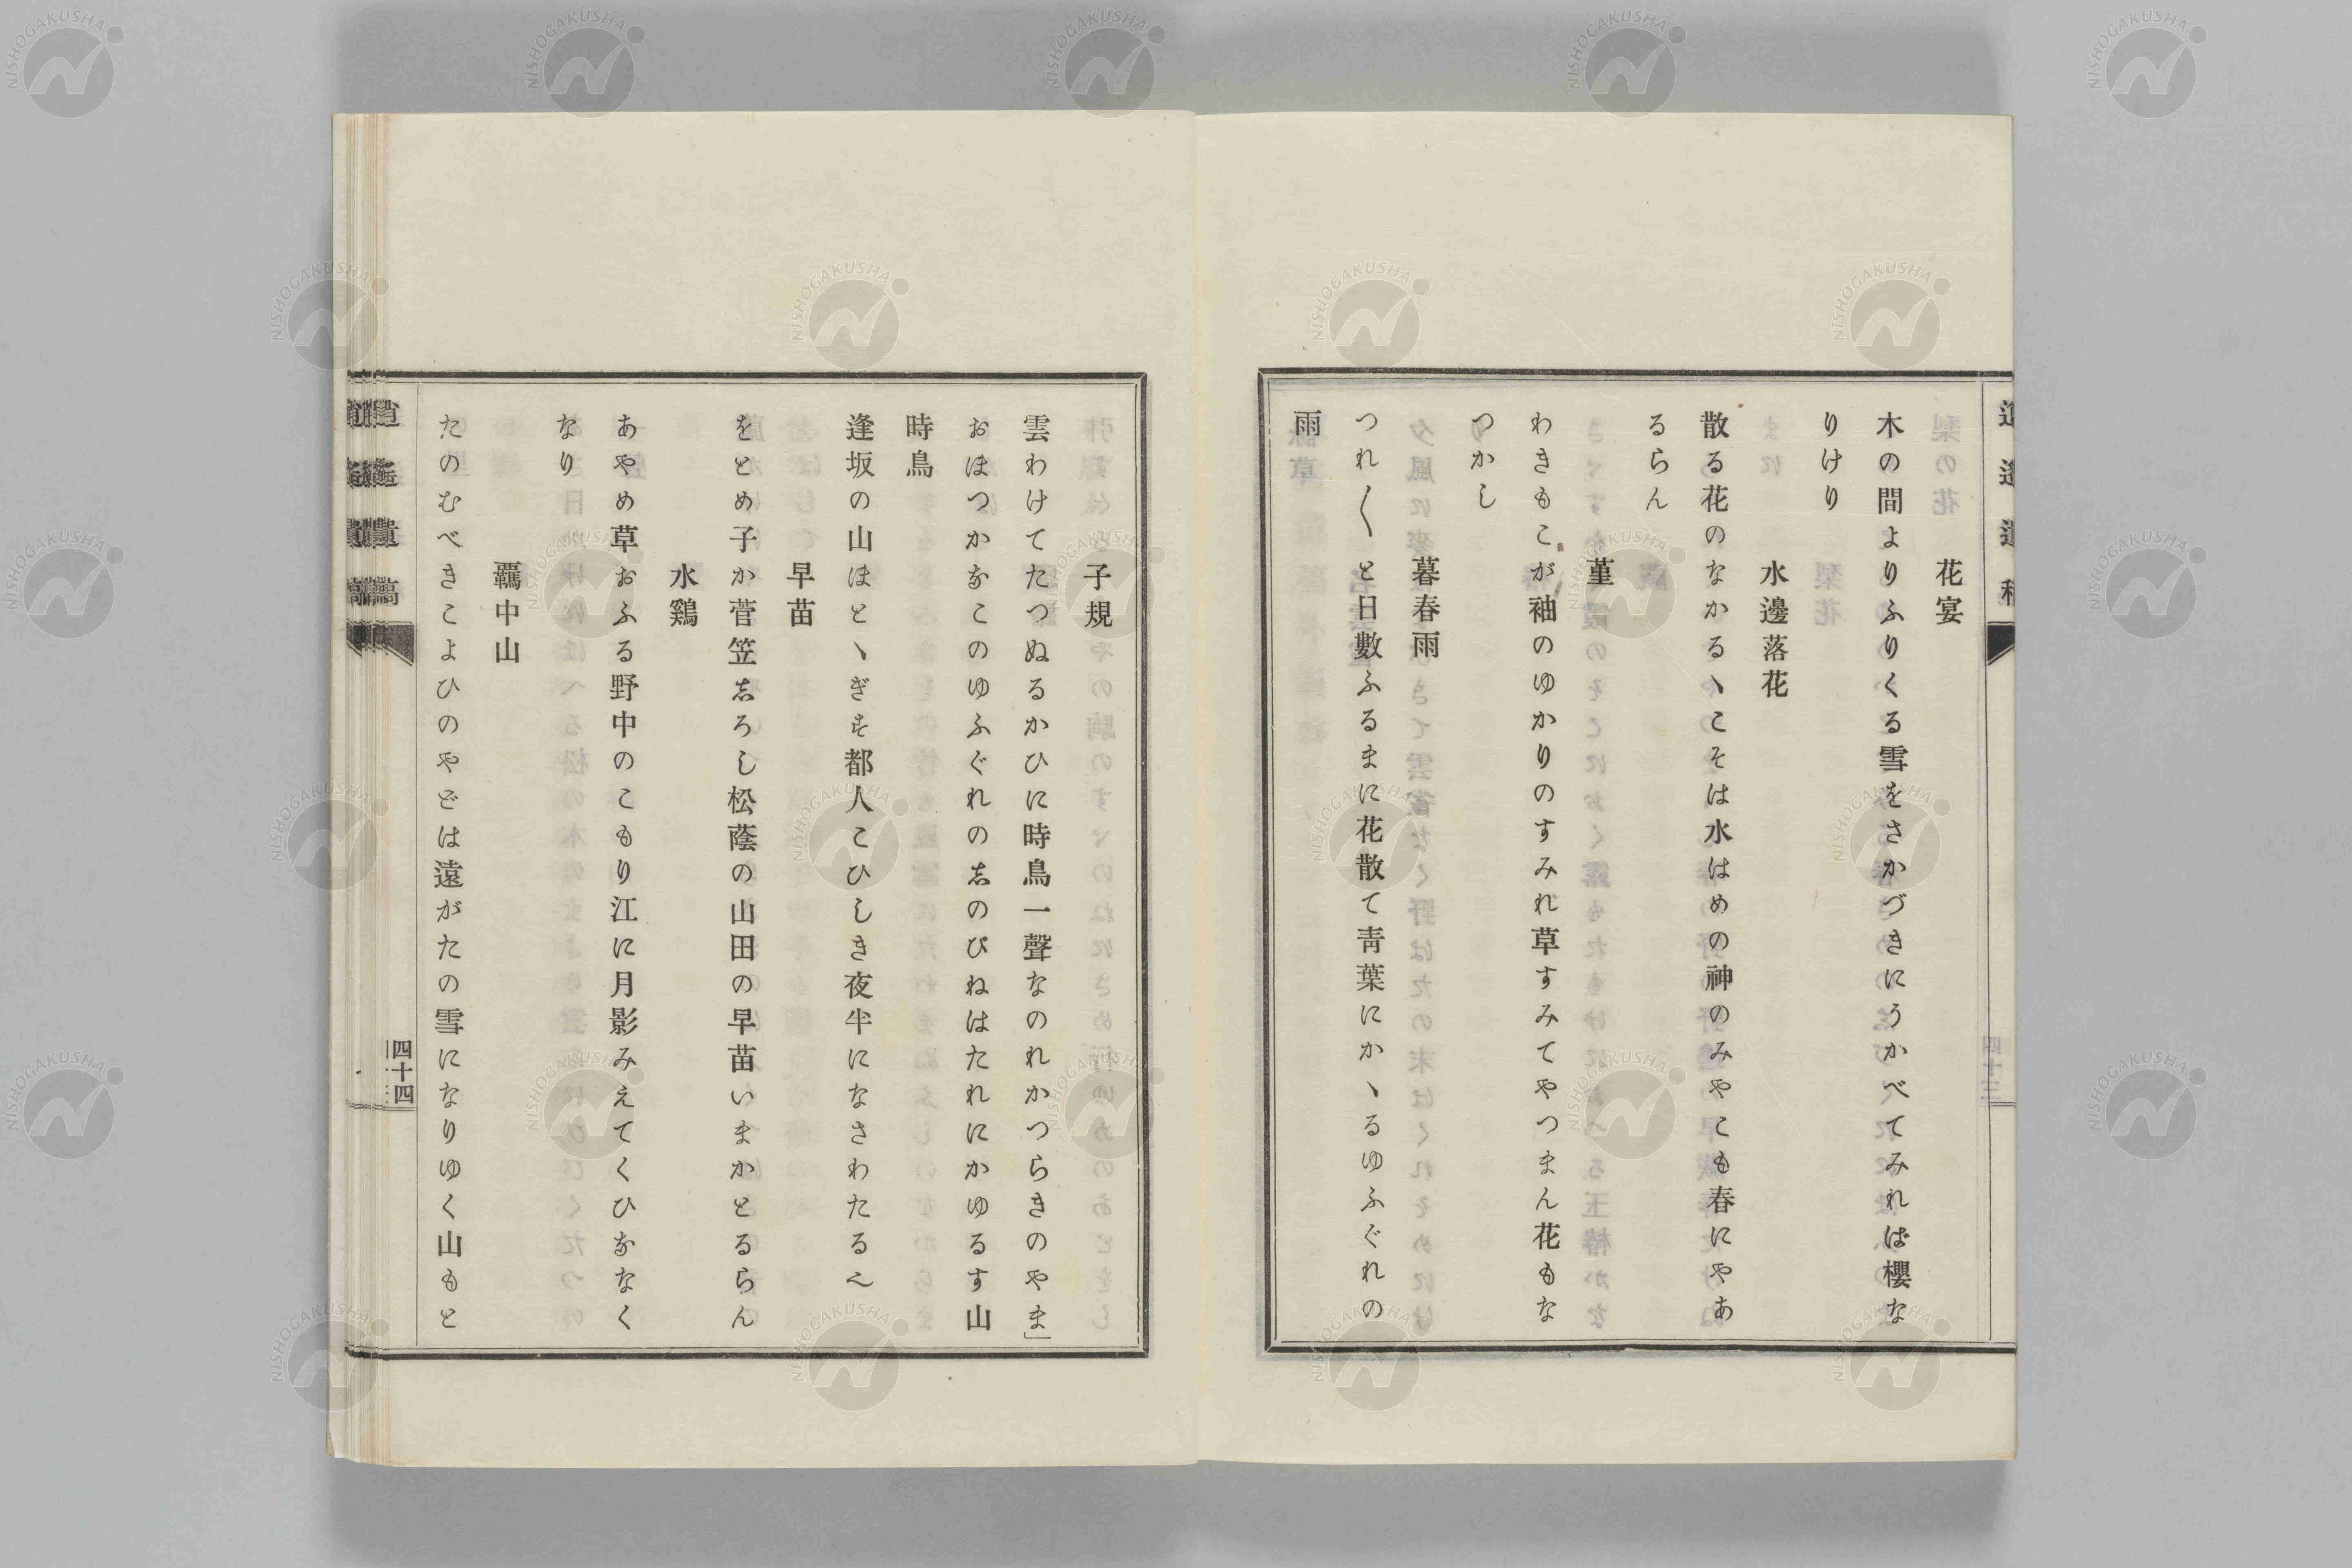 花宴
木の間よりふりくる雪をさかづきにうかべてみれば櫻な
りけり
水邊落花
散る花のなかるゝこそは水はめの神のみやこも春にやあ
るらん
菫
わきもこが袖のゆかりのすみれ草すみてやつまん花もな
つかし
暮春雨
つれ〱と日數ふるまに花散て靑葉にかゝるゆふぐれの
雨
子規
雲わけてたつぬるかひに時鳥一聲なのれかつらきのやま」
おほつかなこのゆふぐれの志のびねはたれにかゆるす山
時鳥
逢坂の山ほとゝぎす都人こひしき夜半になさわたるへ
早苗
をとめ子か菅笠志ろし松蔭の山田の早苗いまかとるらん
水鷄
あやめ草おふる野中のこもり江に月影みえてくひななく
なり
羇中山
たのむべきこよひのやどは遠がたの雪になりゆく山もと
四十四
NISHOGAKUSHA